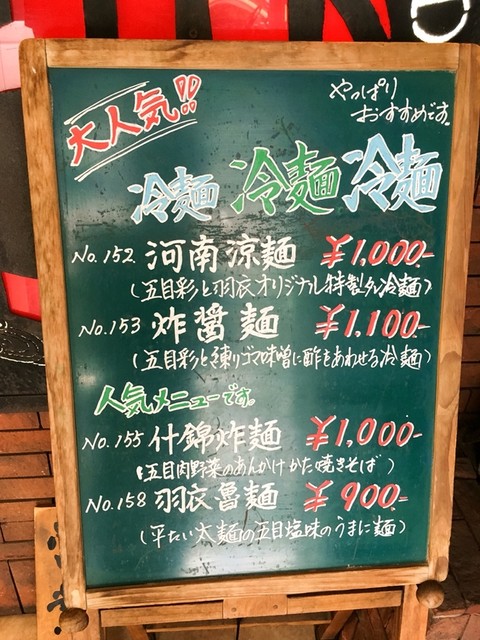 大人気!!
やっぱり
おすすめです。
冷麺 冷麺 冷麺
No.152 河南涼麺 ¥1,000-
(五目彩と羽衣オリジナル特製タレ冷麺)
No.153 炸醤麺 ¥1,100-
(五目彩と練りゴマ味噌に酢もあわせる冷麺)
人気メニューです。
No.155 什錦炸麺 ¥1,000-
(五目肉野菜のあんかけかた焼きそば)
No.158 羽衣魯麺 ¥900-
(平たい太麺の五目塩味のうまに麺)